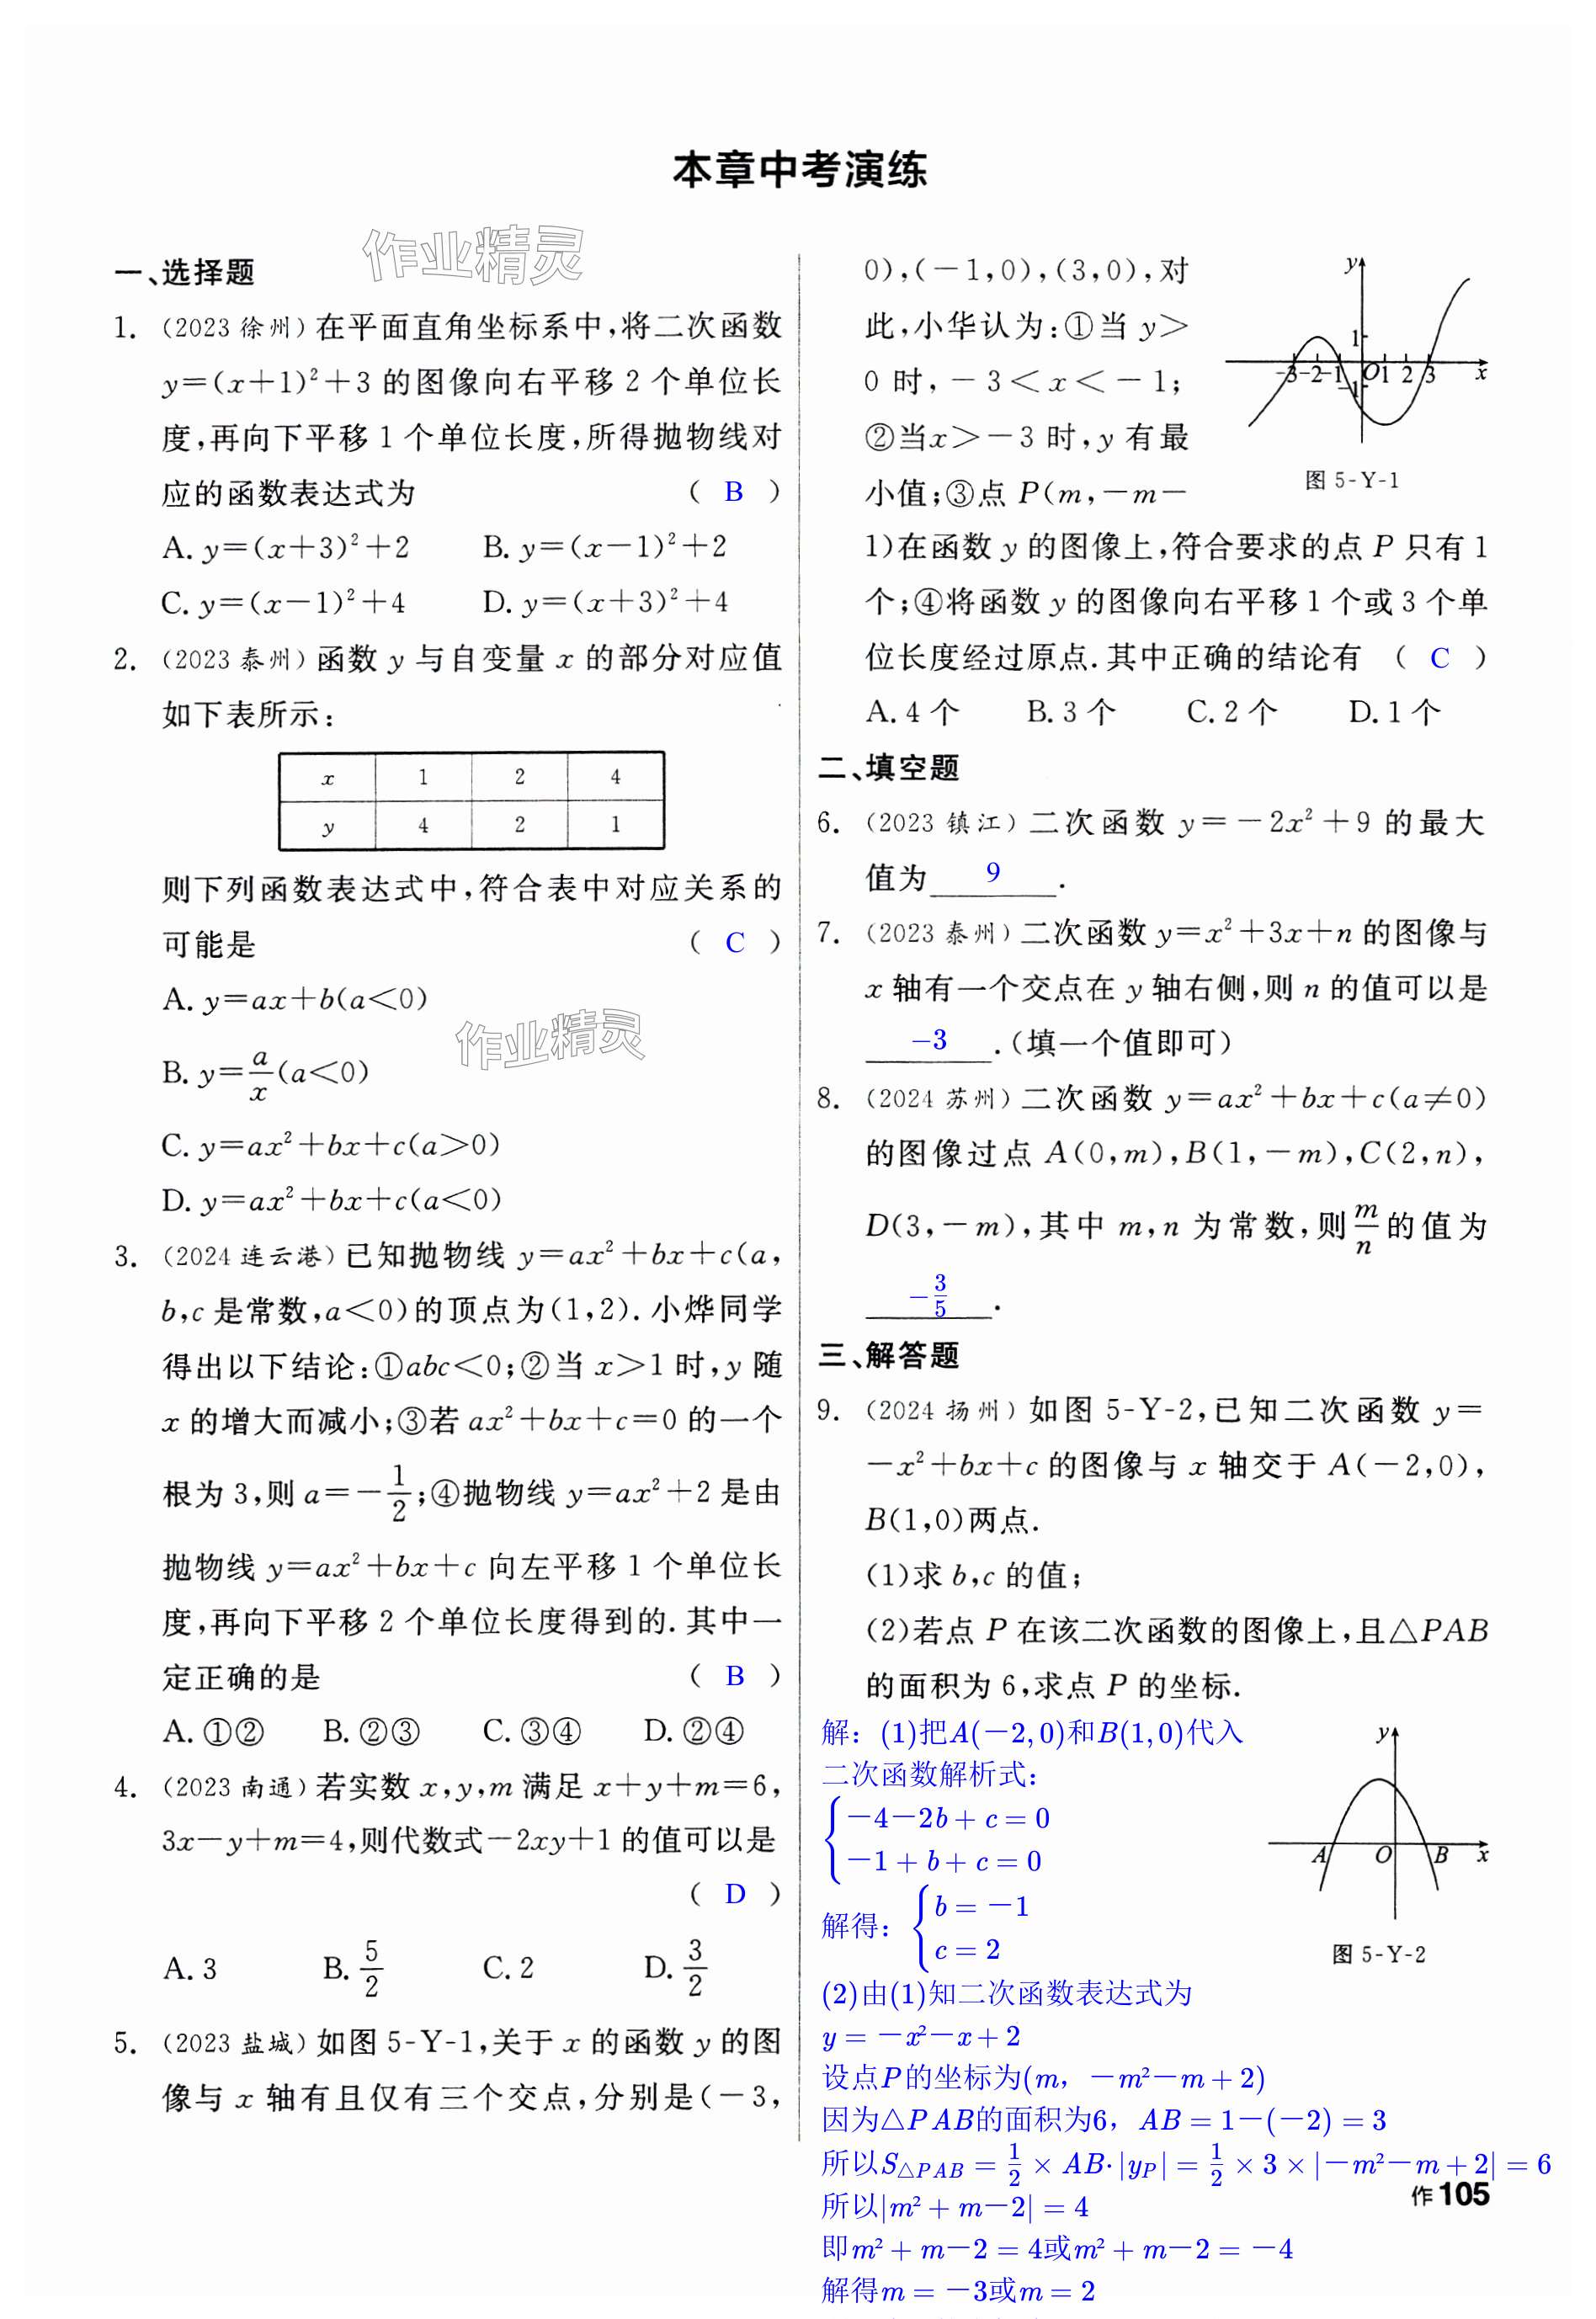 本章中考演练
作业精灵
一、选择题
1. (2023 徐州) 在平面直角坐标系中,将二次函数
y=(x+1)²+3 的图像向右平移 2 个单位长
度,再向下平移 1 个单位长度,所得抛物线对
应的函数表达式为 ( B )
A. y=(x+3)²+2 B. y=(x-1)²+2
C. y=(x-1)²+4 D. y=(x+3)²+4
2. (2023 泰州) 函数 y 与自变量 x 的部分对应值
如下表所示:
x 1 2 4
y 4 2 1
则下列函数表达式中,符合表中对应关系的
可能是 ( C )
A. y=ax+b(a<0)
作业精灵
B. y=a/x(a<0)
C. y=ax²+bx+c(a>0)
D. y=ax²+bx+c(a<0)
3. (2024 连云港) 已知抛物线 y=ax²+bx+c(a,
b,c 是常数,a<0)的顶点为(1,2). 小烨同学
得出以下结论:①abc<0;②当 x>1 时,y 随
x 的增大而减小;③若 ax²+bx+c=0 的一个
根为 3,则 a=-1/2;④抛物线 y=ax²+2 是由
抛物线 y=ax²+bx+c 向左平移 1 个单位长
度,再向下平移 2 个单位长度得到的. 其中一
定正确的是 ( B )
A. ①② B. ②③ C. ③④ D. ②④
4. (2023 南通) 若实数 x,y,m 满足 x+y+m=6,
3x-y+m=4,则代数式-2xy+1 的值可以是
( D )
A. 3 B. 5/2 C. 2 D. 3/2
5. (2023 盐城) 如图 5-Y-1,关于 x 的函数 y 的图
像与 x 轴有且仅有三个交点,分别是(-3,
0),(-1,0),(3,0),对
此,小华认为:①当 y>
0 时,-3<x<-1;
②当x>-3 时,y 有最
小值;③点 P(m,-m-
y
1
-3 -2 -1 O 1 2 3 x
-1
图 5-Y-1
1)在函数 y 的图像上,符合要求的点 P 只有 1
个;④将函数 y 的图像向右平移 1 个或 3 个单
位长度经过原点. 其中正确的结论有 ( C )
A. 4 个 B. 3 个 C. 2 个 D. 1 个
二、填空题
6. (2023 镇江) 二次函数 y=-2x²+9 的最大
值为 9 .
7. (2023 泰州) 二次函数 y=x²+3x+n 的图像与
x 轴有一个交点在 y 轴右侧,则 n 的值可以是
-3 .(填一个值即可)
8. (2024 苏州) 二次函数 y=ax²+bx+c(a≠0)
的图像过点 A(0,m),B(1,-m),C(2,n),
D(3,-m),其中 m,n 为常数,则 m/n 的值为
-3/5 .
三、解答题
9. (2024 扬州) 如图 5-Y-2,已知二次函数 y=
-x²+bx+c 的图像与 x 轴交于 A(-2,0),
B(1,0)两点.
(1)求 b,c 的值;
(2)若点 P 在该二次函数的图像上,且△PAB
的面积为 6,求点 P 的坐标.
解：(1)把A(-2,0)和B(1,0)代入
二次函数解析式：
{-4-2b+c=0
-1+b+c=0
解得：{b=-1
c=2
y
A O B x
图 5-Y-2
(2)由(1)知二次函数表达式为
y=-x²-x+2
设点P的坐标为(m，-m²-m+2)
因为△PAB的面积为6，AB=1-(-2)=3
所以S△PAB=1/2×AB·|yP|=1/2×3×|-m²-m+2|=6
作105
所以|m²+m-2|=4
即m²+m-2=4或m²+m-2=-4
解得m=-3或m=2